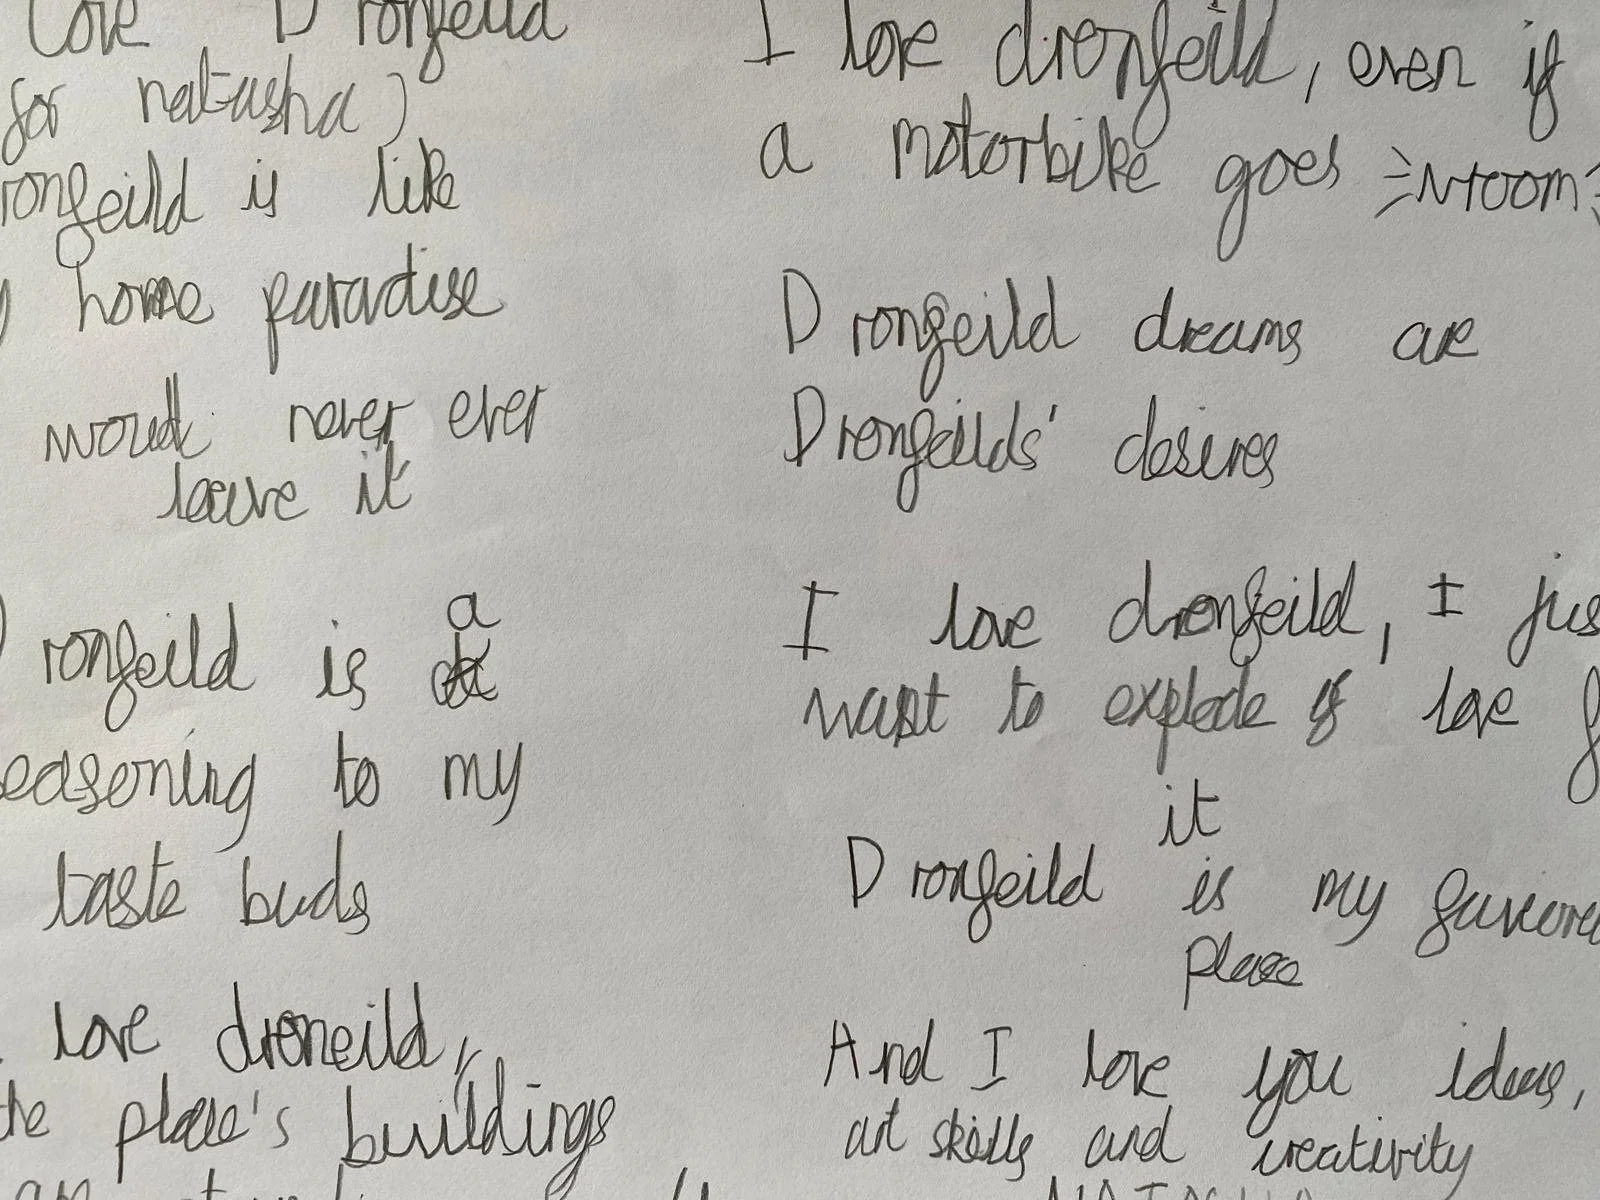 love Dronfeild
for natasha)
ronfeild is like
home paradise
would never ever
leave it
Dronfeild is a
easoning to my
taste buds
love droneild,
the place's buildings
I love dronfeild, even if
a motorbike goes vroom
Dronfeild dreams are
Dronfeilds' desires
I love dronfeild, I jus
want to explode of love f
it
Dronfeild is my favouri
place
And I love you ideas,
art skills and creativity